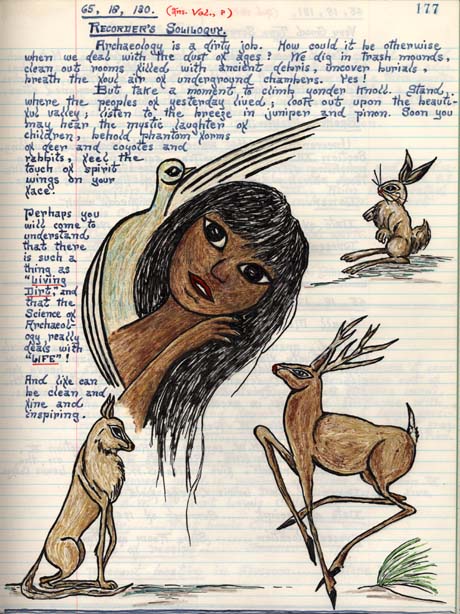 65, 18, 180. (Ans. Vol., P)
177
RECORDER'S SOLILOQUY.
Archaeology is a dirty job. How could it be otherwise
when we deal with the dust of ages? We dig in trash mounds,
clean out rooms filled with ancient debris, uncover burials,
breath the foul air of underground chambers. Yes!
But take a moment to climb yonder knoll. Stand
where the peoples of yesterday lived; look out upon the beauti-
ful valley; listen to the breeze in juniper and pinon. Soon you
may hear the mystic laughter of
children, behold phantom forms
of deer and coyotes and
rabbits, feel the
touch of spirit
wings on your
face.
Perhaps you
will come to
understand
that there
is such a
thing as
"Living
Dirt," and
that the
Science of
Archaeol-
ogy really
deals with
"LIFE"!
And life can
be clean and
fine and
inspiring.